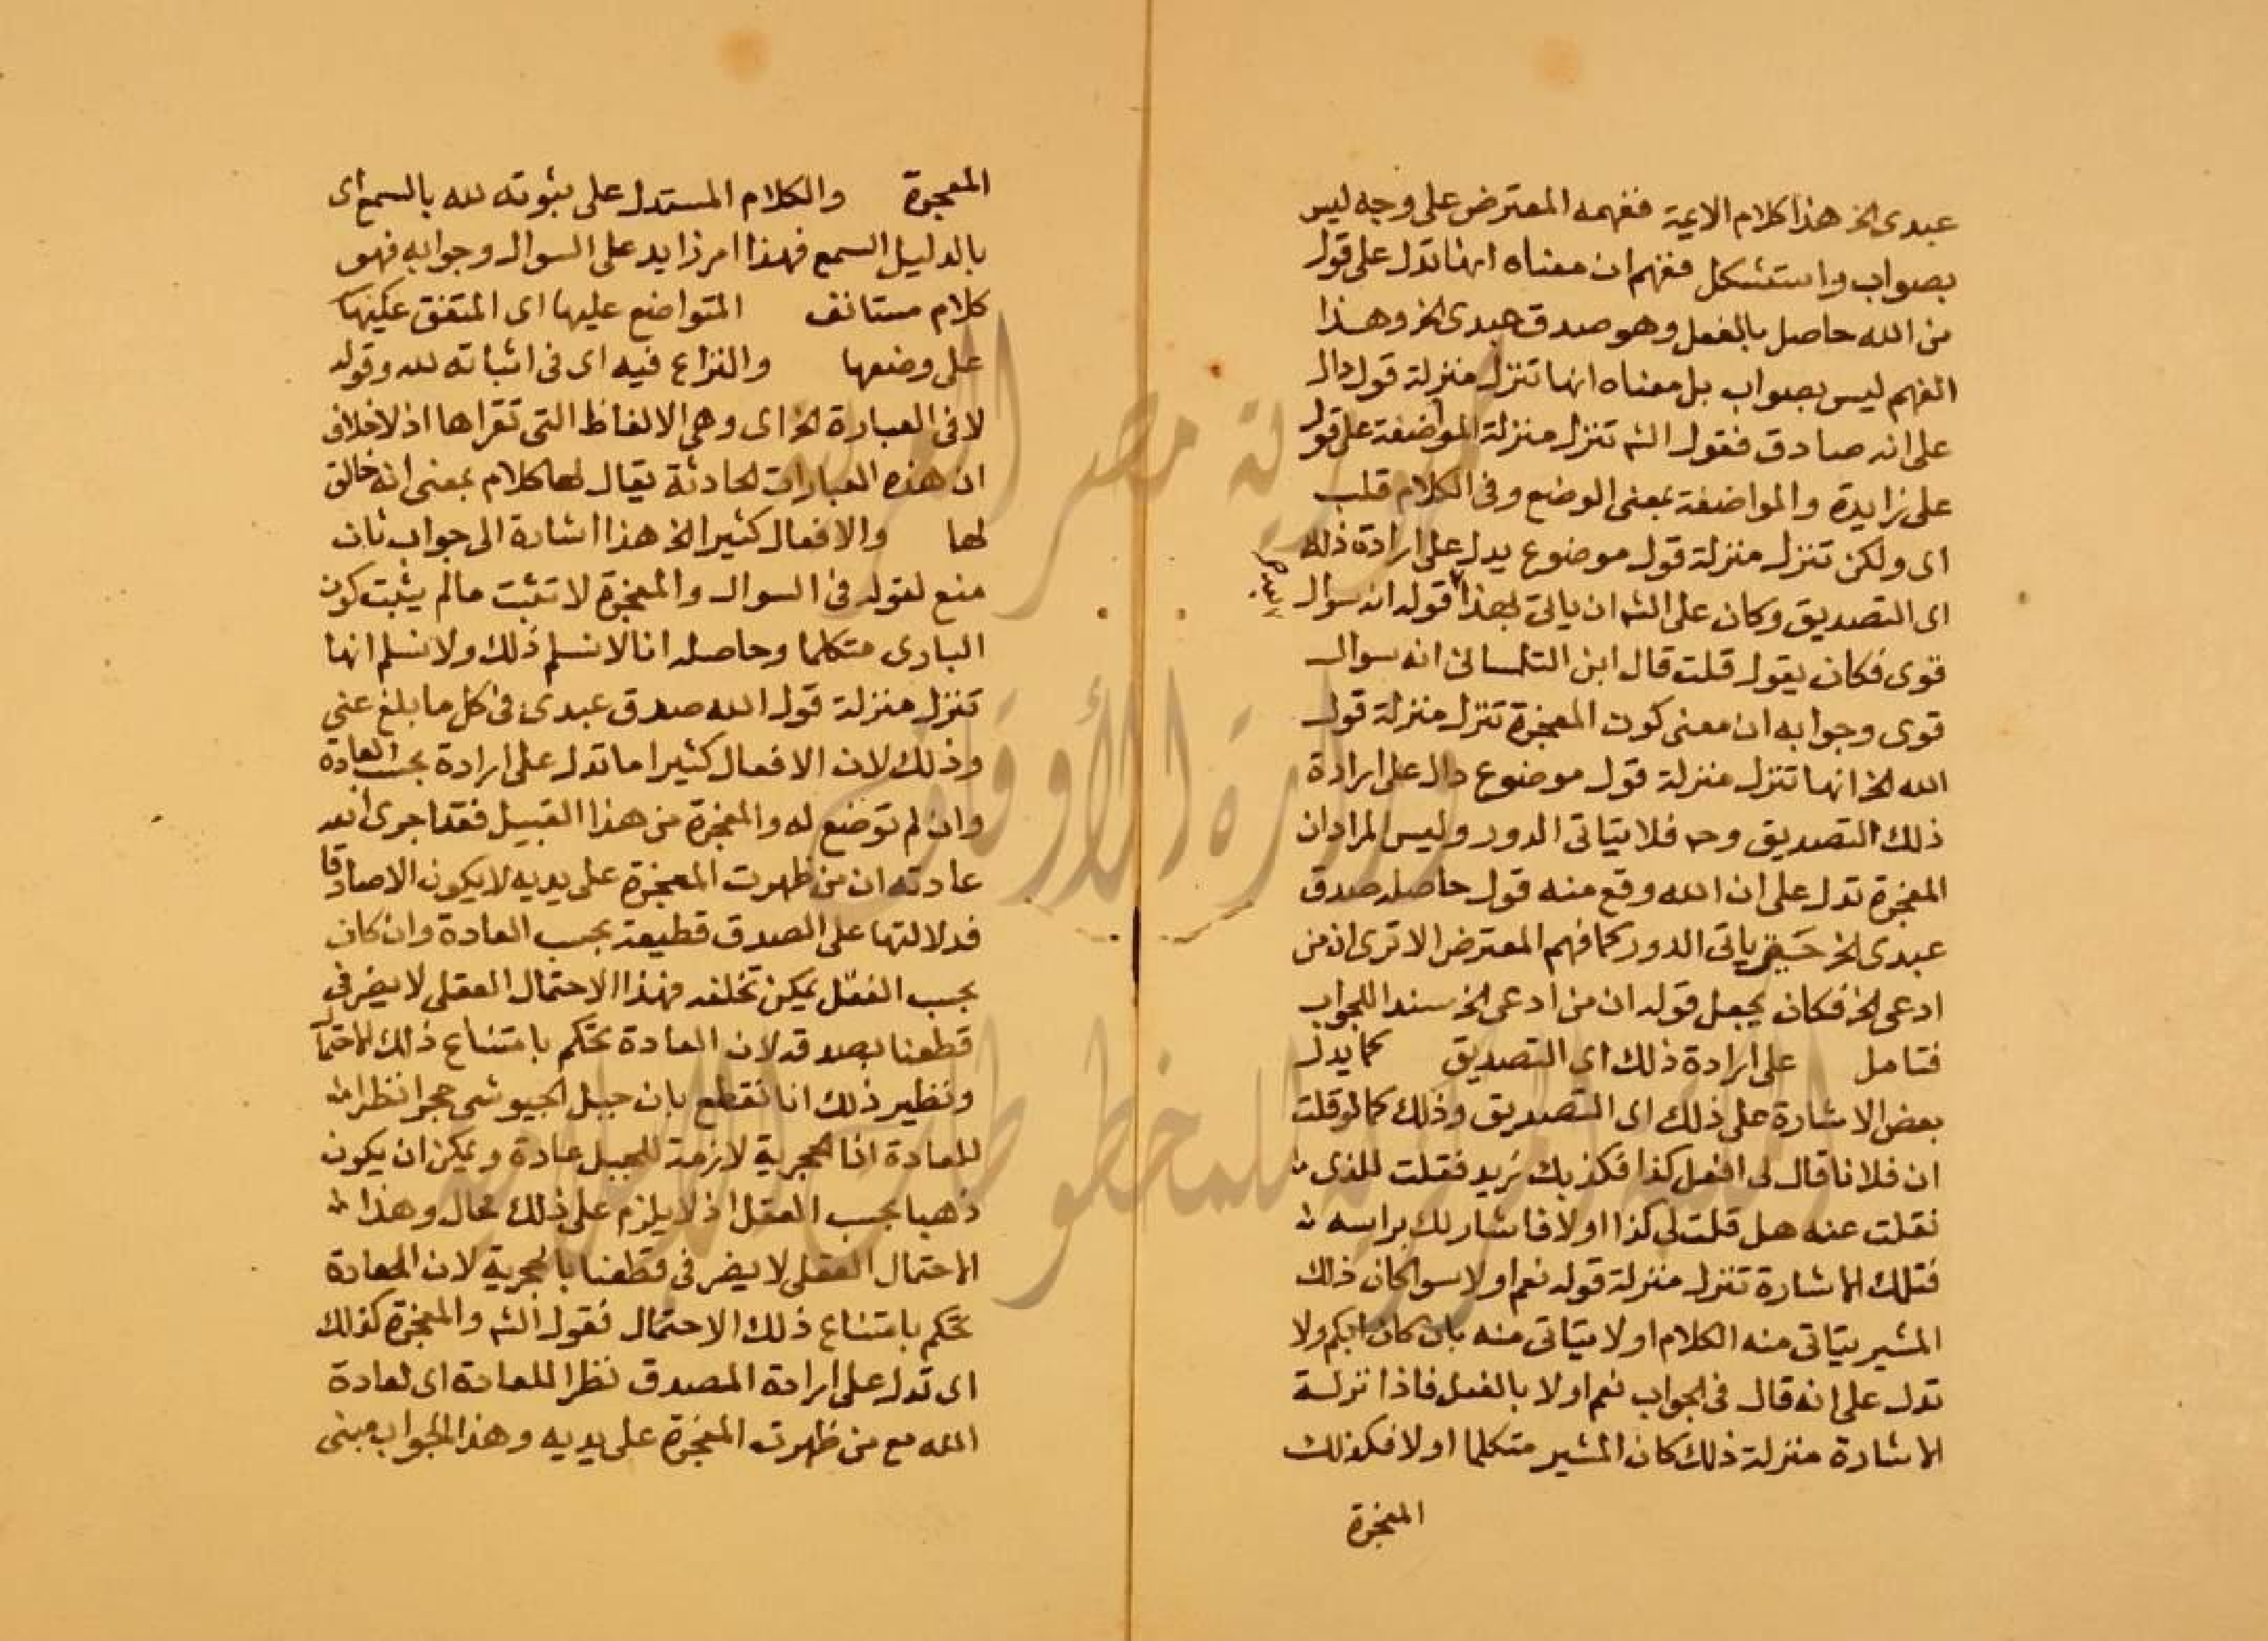 عبدى الخ هذا كلام الايمة ففهمه المعترض على وجه ليس
بصواب واستشكل ففهم ان معناه انها تدل على قول
من الله حاصل بالفعل وهو صدق عبدى الخ وهذا
الفهم ليس بصواب بل معناه انها تنزل منزلة قول دال
على انه صادق فقول الشم تنزل منزلة المواضعة على قول
على زايدة والمواضعة بمعنى الوضع وفى الكلام قلب
اى ولكن تنزل منزلة قول موضوع يدل على ارادة ذلك
اى التصديق وكان على الشم ان ياتى بهذا قوله انه سوال
قوى فكان يقول قلت قال ابن التلمسانى انه سوال
قوى وجوابه ان معنى كون المعجزة تنزل منزلة قول
الله الخ انها تنزل منزلة قول موضوع دال على ارادة
ذلك التصديق وح فلا يتاتى الدور وليس المراد ان
المعجزة تدل على ان الله وقع منه قول حاصله صدق
عبدى الخ حتى ياتى الدور كما فهم المعترض الا ترى ان من
ادعى الخ فكان يجعل قوله ان من ادعى الخ سندا للجواب
فتامل على ارادة ذلك اى التصديق كما يدل
بعض الاشارة على ذلك اى التصديق وذلك كما لو قلت
ان فلانا قال لى افعل كذا فكذبك زيد فقلت للذى
نقلت عنه هل قلت لى كذا اولا فاشار لك براسه
فتلك الاشارة تنزل منزلة قوله نعم او لا سوا كان ذلك
المشير يتاتى منه الكلام او لا يتاتى منه بان كان ابكم ولا
تدل على انه قال فى الجواب نعم او لا بالفعل فاذا نزلت
الاشارة منزلة ذلك كان المشير متكلما او لا فكذلك
المعجزة
المعجزة والكلام المستدل على ثبوته لله بالسمع اى
بالدليل السمع فهذا امر زايد على السوال وجوابه فهو
كلام مستانف المتواضع عليها اى المتفق عليها
على وضعها والنزاع فيه اى فى اثباته لله وقوله
لا فى العبارة الخ اى وهى الالفاظ التى تقراها اذ لا خلاف
ان هذه العبارات الحادثة يقال لها كلام بمعنى انه خالق
لها والافعال كثيرا الخ هذا اشارة الى جواب ثان
منع لقوله فى السوال والمعجزة لا تثبت مالم يثبت كون
البارى متكلما وحاصله انا لا نسلم ذلك ولا نسلم انها
تنزل منزلة قول الله صدق عبدى فى كل ما بلغ عنى
وذلك لان الافعال كثيرا ما تدل على ارادة بحسب العادة
وان لم توضع له والمعجزة من هذا القبيل فقد اجرى الله
عادته ان من ظهرت المعجزة على يديه لا يكون الا صادقا
فدلالتها على الصدق قطيعة بحسب العادة وان كان
بحسب العقل يمكن تخلفه فهذا الاحتمال العقلى لا يضر فى
قطعنا بصدقه لان العادة تحكم بامتناع ذلك الاحتمال
ونظير ذلك انا نقطع بان جبل الجيوشى حجرا نظرا
للعادة اذا الحجرية لازمة للجبل عادة ويمكن ان يكون
ذهبا بحسب العقل اذ لا يلزم على ذلك محال وهذا
الاحتمال العقلى لا يضر فى قطعنا بالحجرية لان العادة
تحكم بامتناع ذلك الاحتمال فقول الشم والمعجزة كذلك
اى تدل على ارادة المصدق نظرا للعادة اى لعادة
الله مع من ظهرت المعجزة على يديه وهذا الجواب مبنى